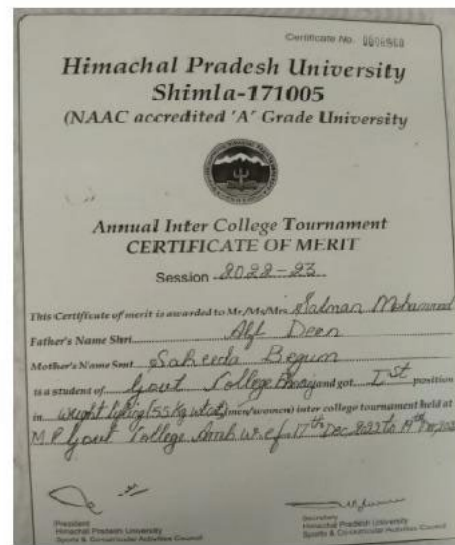 Certificate No.
Himachal Pradesh University
Shimla-171005
(NAAC accredited 'A' Grade University
Annual Inter College Tournament
CERTIFICATE OF MERIT
Session 2022-23
This Certificate of merit is awarded to Mr/Ms/Mrs. Salman Mohammad
Father's Name Shri Alf Deen
Mother's Name Smt Sakeeda Begum
is a student of Govt College and got Ist position
in weight lifting (55 Kg wt cat) men/women) inter college tournament held at
Govt College Amb w.e.f. 17th Dec, 2022 to 19th Dec, 202
President
Himachal Pradesh University
Sports & Co-curricular Activities Council
Secretary
Himachal Pradesh University
Sports & Co-curricular Activities Council